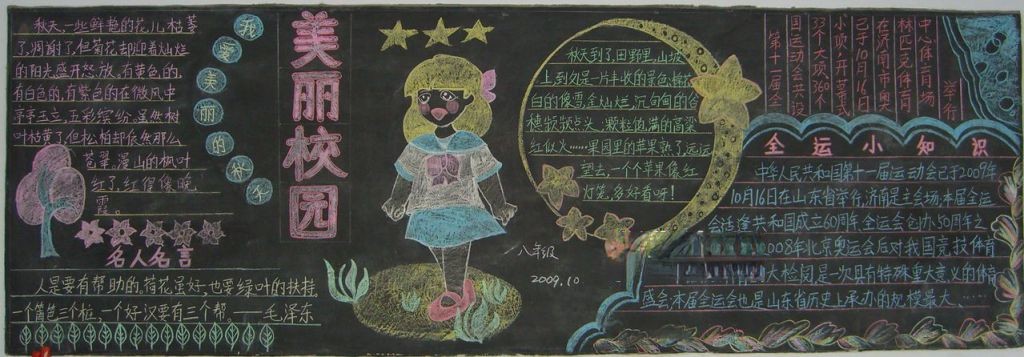 秋天,一些鲜艳的花儿枯萎
了,凋谢了,但菊花却迎着灿烂
的阳光盛开怒放,有黄色的,
有白色的,有紫色的在微风中
亭亭玉立,五彩缤纷,虽然树
叶枯黄了但松柏却依然那么
苍翠,漫山的枫叶
红了,红得像晚
霞。
我爱美丽的秋天
美丽校园
名人名言
人是要有帮助的,荷花虽好,也要绿叶的扶持
一个篱笆三个桩,一个好汉要有三个帮。——毛泽东
八年级
2009.10
秋天到了,田野里,山坡
上到处是一片丰收的景色,棉花
白的像雪,金灿灿,沉甸甸的谷
穗频频点头,颗粒饱满的高粱
红似火……果园里的苹果熟了远远
望去,一个个苹果像红
灯笼,多好看呀!
第十一届全
国运动会共设
33个大项,360个
小项,开幕式
已于10月16日
在济南市奥
林匹克体育
中心体育场
举行
全运小知识
中华人民共和国第十一届运动会已于2009年
10月16日在山东省举行,济南是主会场,本届全运
会适逢共和国成立60周年,全运会创办50周年之
2008年北京奥运会后对我国竞技体育
大检阅是一次具有特殊重大意义的体育
盛会本届全运会也是山东省历史上承办的规模最大、……